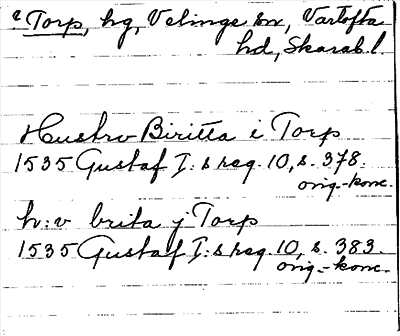 Torp, hg, Velinge sn, Vartofta
hd, Skarab. l.
Hustrv Biritta i Torp
1535 Gustaf I:s reg. 10, s. 378.
orig.-konc.
h:v brita j Torp
1535 Gustaf I:s reg. 10, s. 383.
orig.-konc.